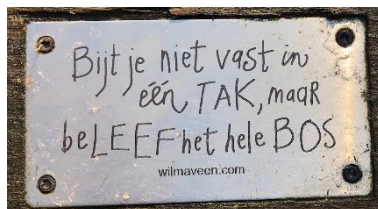 Bijt je niet vast in
één TAK, maaR
beLEEF het hele BOS
wilmaveen.com